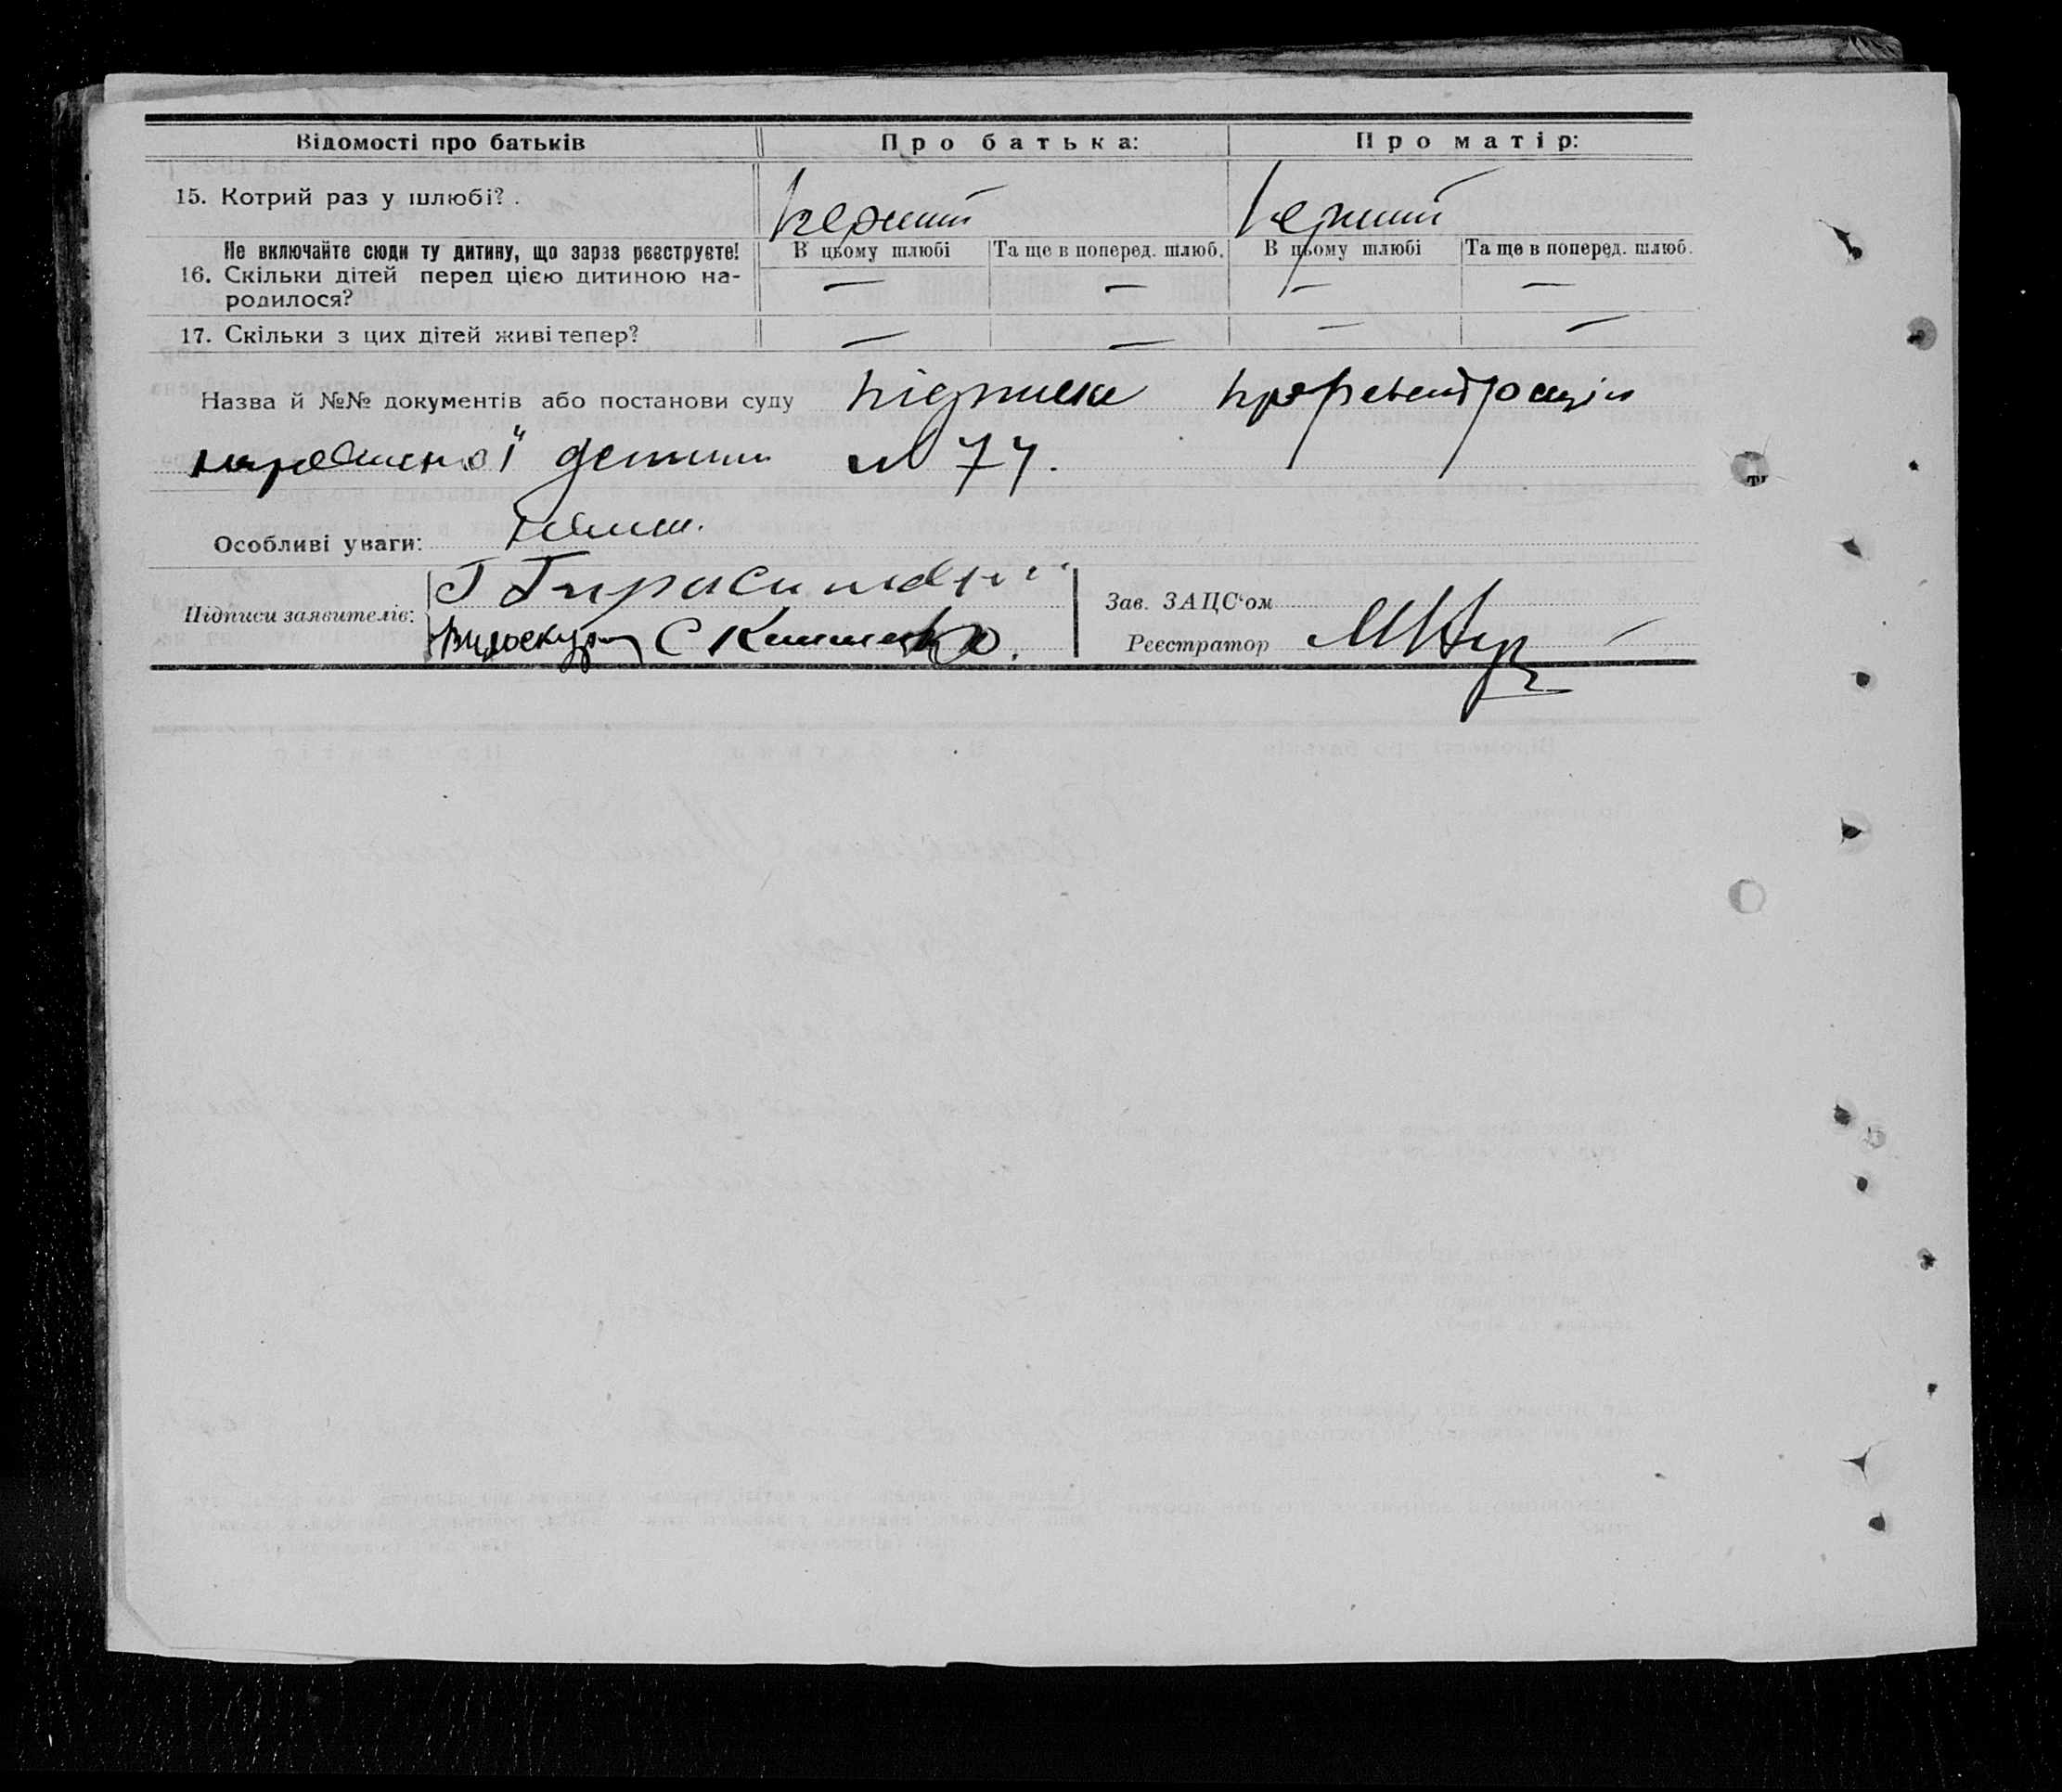 Відомості про батьків Про батька: Про матір:
15. Котрий раз у шлюбі? . перший перший
Не включайте сюди ту дитину, що зараз реєструєте! В цьому шлюбі Та ще в поперед. шлюб. В цьому шлюбі Та ще в поперед. шлюб.
16. Скільки дітей перед цією дитиною на- — — — —
родилося?
17. Скільки з цих дітей живі тепер? — — — —
Назва й №№ документів або постанови суду підписка про реєстрацію
дитини № 74.
Особливі уваги:
Підписи заявителів:
Зав. ЗАЦС'ом
С
Реєстратор